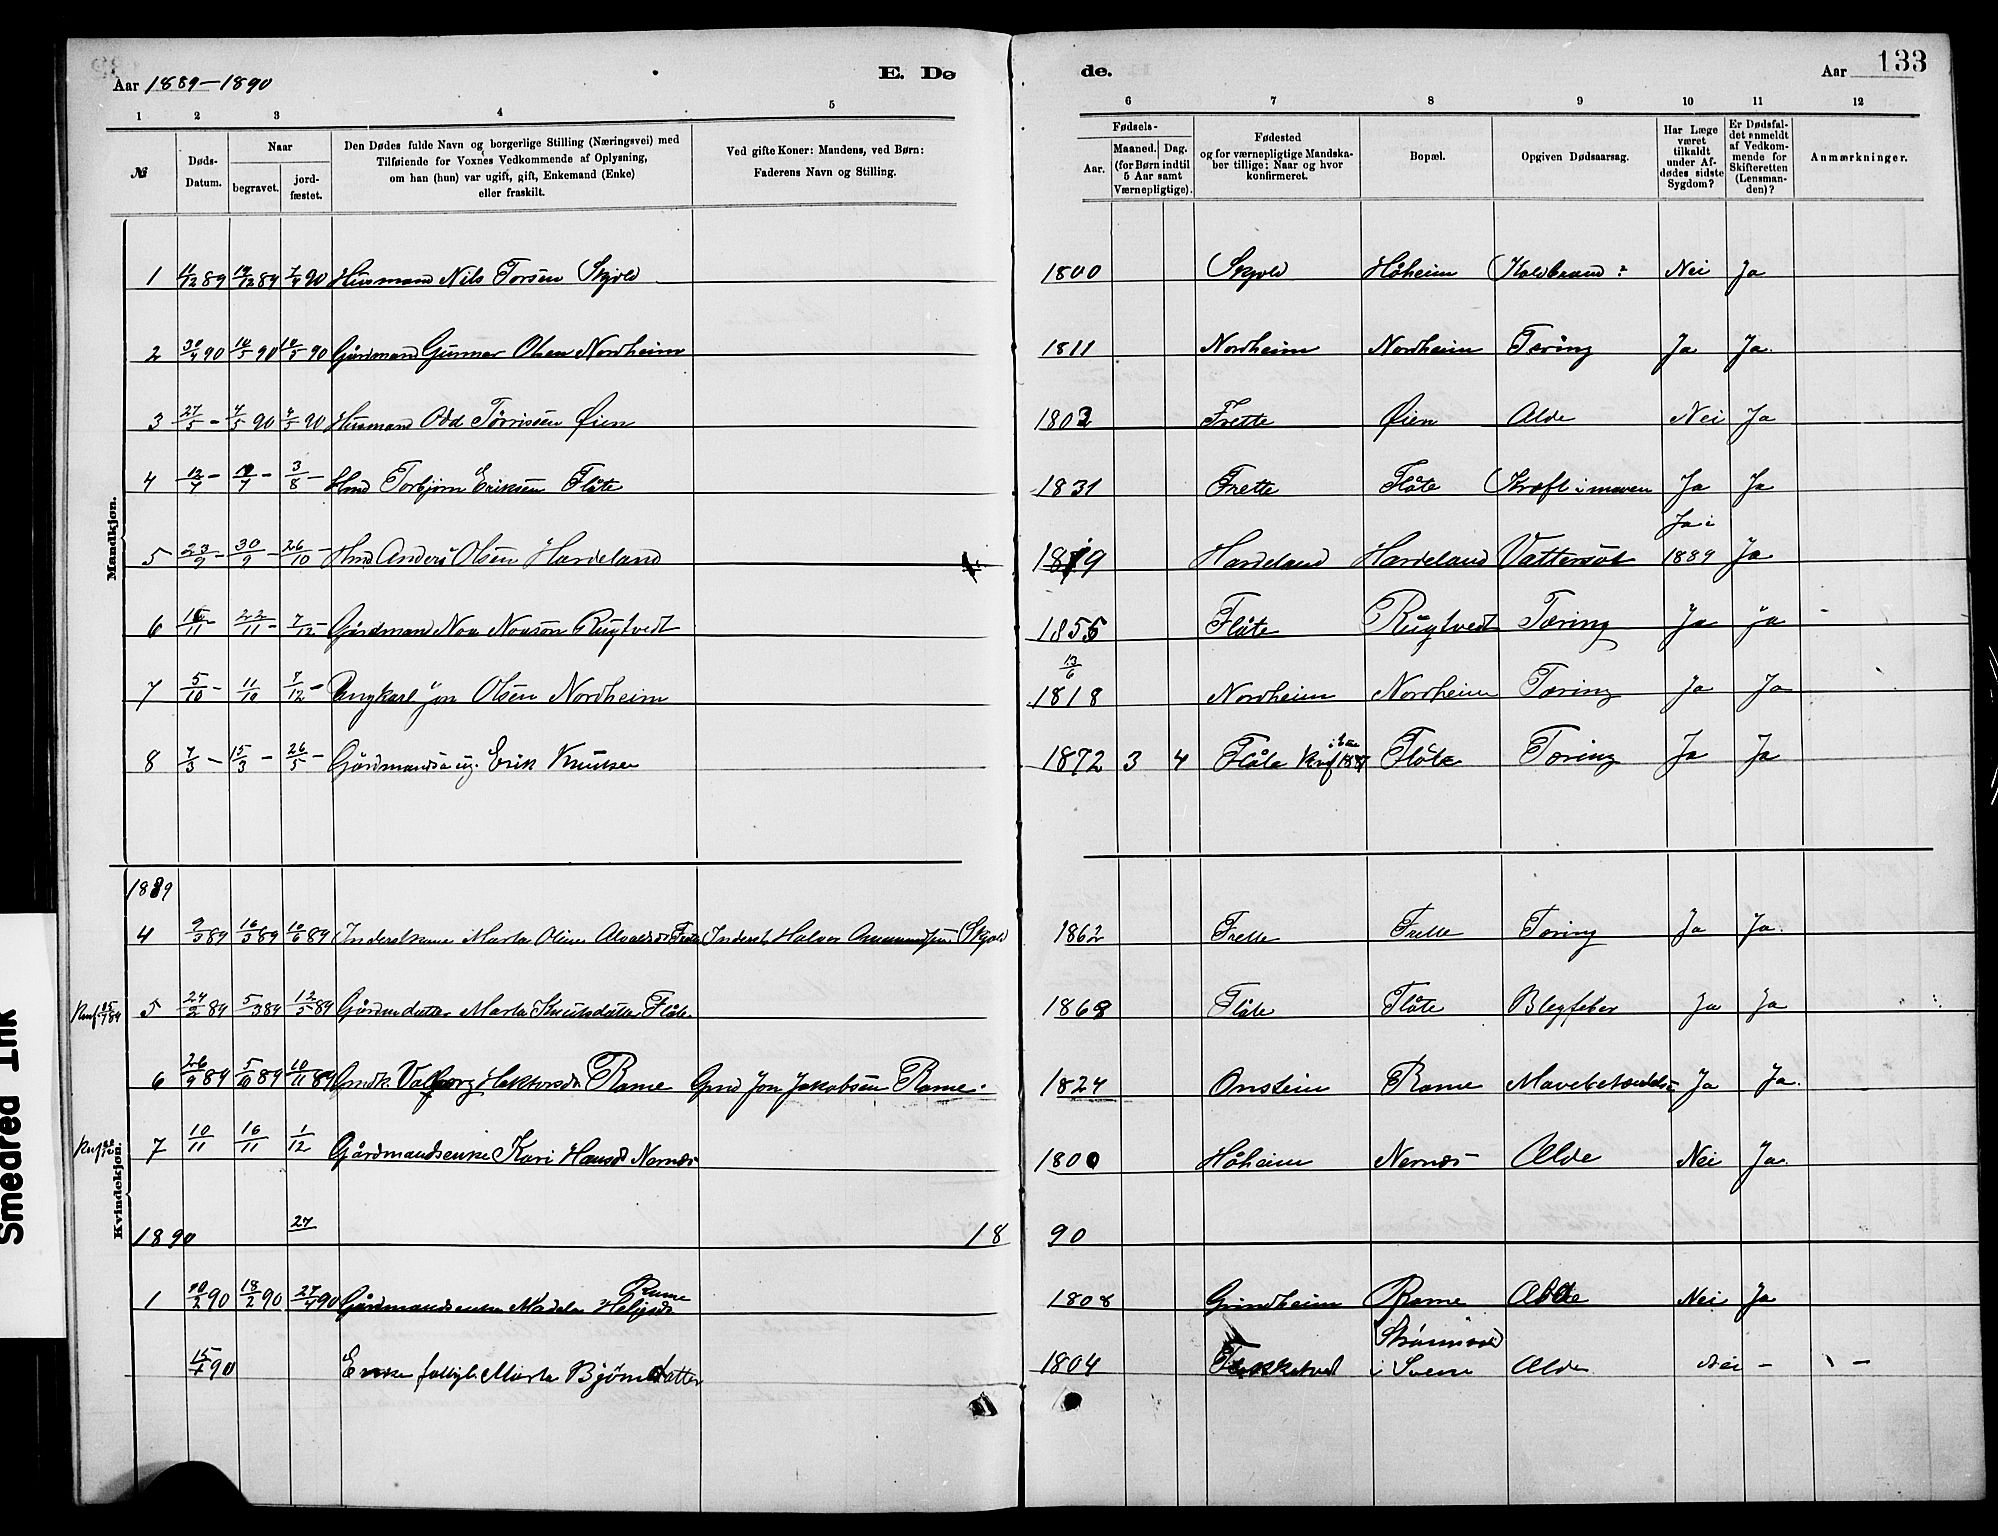 Aar 1889-1890
E. Dø
de.
Aar
133
1 2 3 4 5 6 7 8 9 10 11 12
№
Døds-
Datum.
Naar
begravet.
jord-
fæstet.
Den Dødes fulde Navn og borgerlige Stilling (Næringsvei) med
Tilføiende for Voxnes Vedkommende af Oplysning,
om han (hun) var ugift, gift, Enkemand (Enke)
eller fraskilt.
Ved gifte Koner: Mandens, ved Børn:
Faderens Navn og Stilling.
Fødsels-
Aar.
Maaned. Dag.
(for Børn indtil
5 Aar samt
Værnepligtige).
Fødested
og for værnepligtige Mandska-
ber tillige: Naar og hvor
konfirmeret.
Bopæl.
Opgiven Dødsaarsag.
Har Læge
været
tilkaldt
under Af-
dødes sidste
Sygdom?
Er Dødsfal-
det anmeldt
af Vedkom-
mende for
Skifteretten
(Lensman-
den)?
Anmærkninger.
Mandkjøn.
1 11/12 89 19/12 89 7/4 90 Husmand Nils Torsen Skjold 1800 Skjold Håheim Koldbrand ? Nei Ja
2 30/4 90 10/5 90 10/5 90 Gårdmand Gunnar Olsen Nordheim 1811 Nordheim Nordheim Tæring Ja Ja.
3 27/5 - 4/5 90 4/5 90 Husmand Odd Tørrissen Øien 1803 Frette Øien Alde Nei Ja
4 12/7 - 19/7 - 3/8 - Hmd Torbjørn Eriksen Flåte 1831 Frette Flåte Kræft i maven Ja Ja
Ja i
5 23/9 - 30/9 - 26/10 - Hmd Anders Olsen Hardeland 1819 Hardeland Hardeland Vattersot 1889 Ja
6 15/11 - 22/11 - 7/12 - Gårdmand Noa Noasøn Rugtvedt 1855 Flåte Rugtvedt Tæring Ja Ja
13/6
7 5/10 - 11/10 7/12 - Ungkarl Jon Olsen Nordheim 1818 Nordheim Nordheim Tæring Ja Ja
8 7/3 - 15/3 - 26/5 - Gårdmandssø ug. Erik Knutsen 1872 3 4 Flåte Flåte Tæring Ja Ja
Kvindekjøn.
1889
4 9/3 89 16/3 89 10/6 89 Inderstkone Marta Oline Frette Inderst Halvor Amundsen Skjold 1862 Frette Frette Tæring Ja Ja.
5 24/2 89 5/3 89 12/5 89 Gårdmdatter Marta Knutsdatter Flåte 1868 Flåte Flåte Blegfeber Ja Ja
6 26/9 89 5/10 89 10/11 89 Gmdk. Valborg Hektorsd. Rame Gmd Jon Jakobsen Rame. 1824 Onstein Rame Ja Ja.
7 10/11 16/11 1/12 Gårdmandsenke Kari Hansd Nernæs 1800 Håheim Nernæs Alde Nei Ja.
27
1890 1890
Rame
1 10/2 90 18/2 90 27/4 90 Gårdmandsenke Helgesd 1808 Grindheim Rame Alde Nei Ja
15/4 90 Enke fattigl. Marta Bjørnsdatter 1804 i Svene Alde Nei -